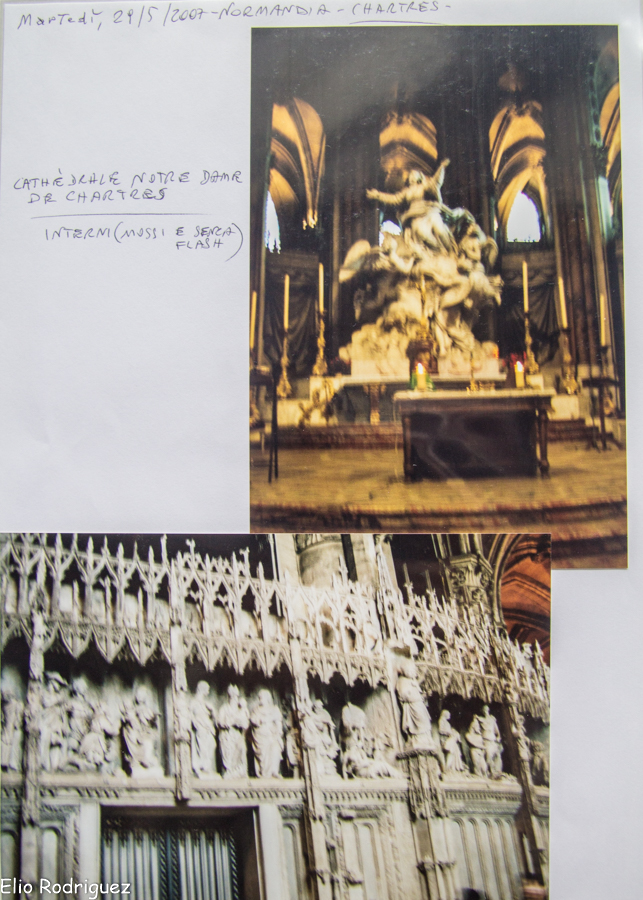 Martedì, 29/5/2007-NORMANDIA - CHARTRES-
CATHÈDRALE NOTRE DAME
DE CHARTRES
INTERNI (MOSSI E SENZA
FLASH)
Elio Rodriguez